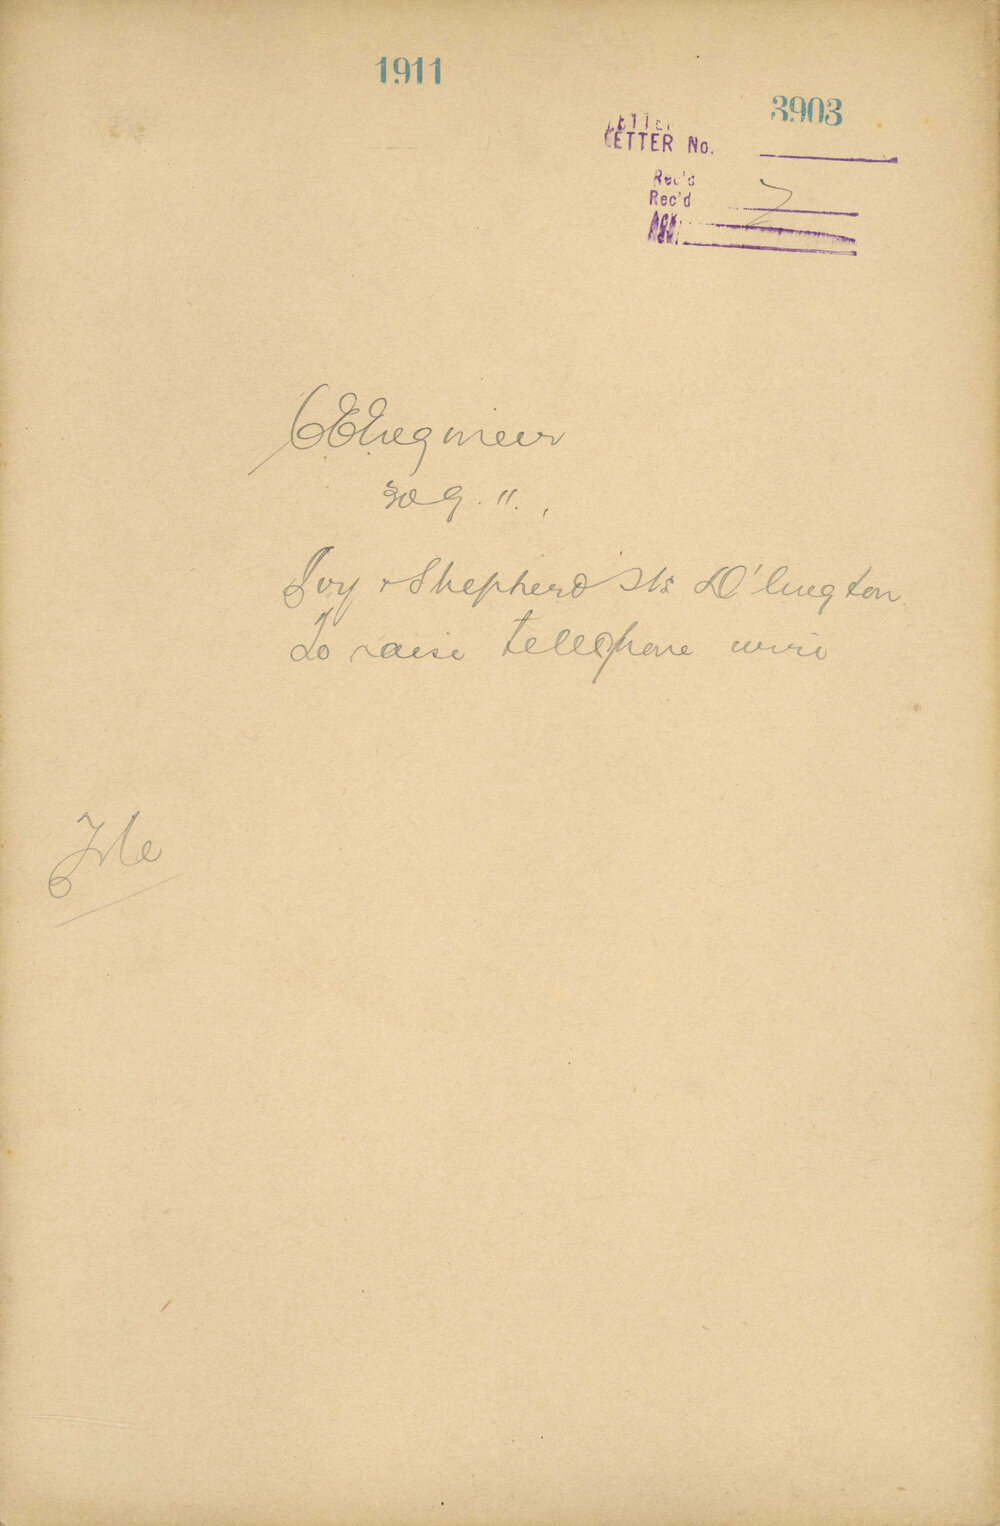 1911
3903
LETTER
LETTER No.
Rec'd
Rec'd
Ans.
Engineer
30 9. 11.
Ivy & Shepherd Sts D'lington
To raise telephone wire
File